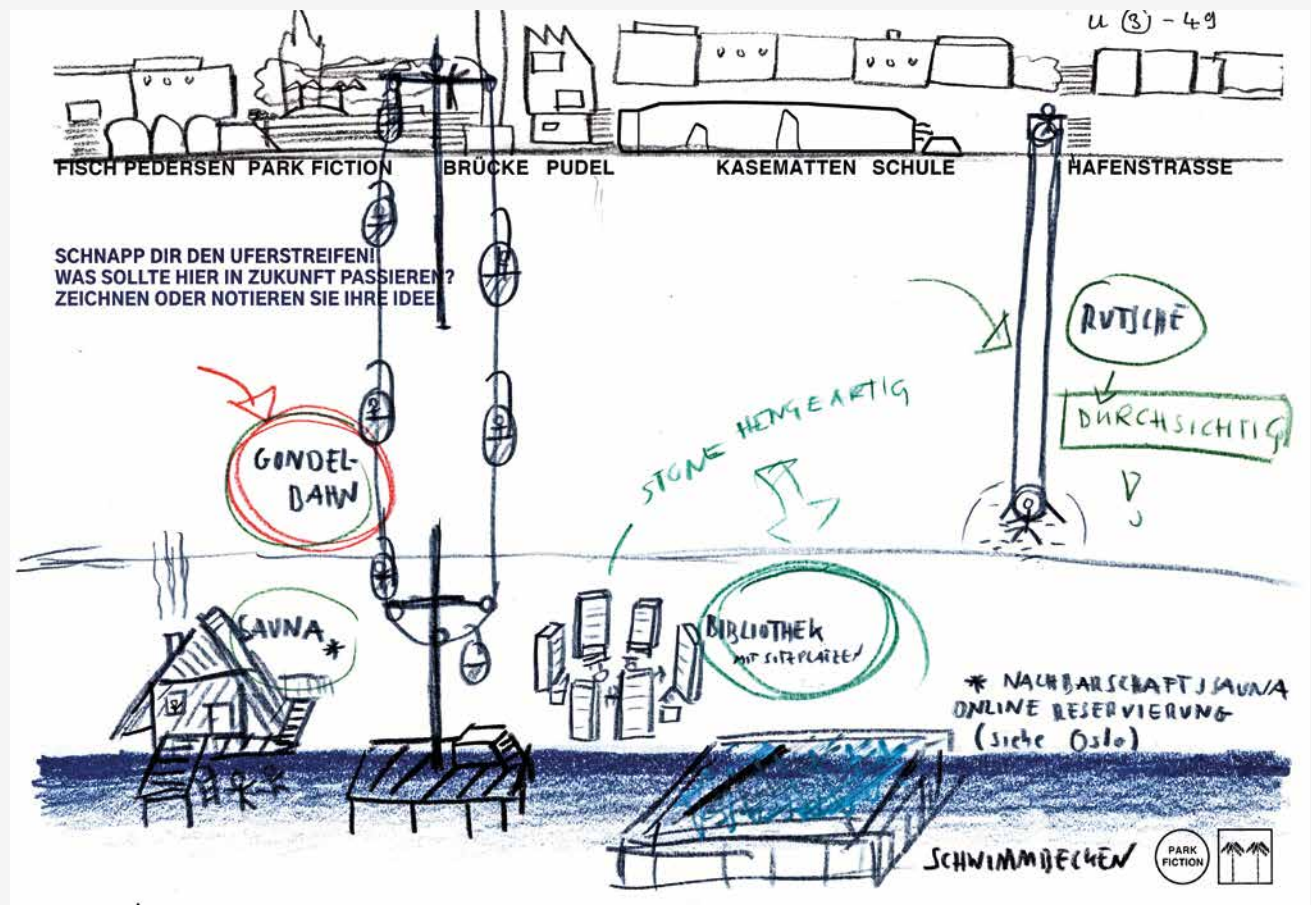 U (3) - 49
FISCH PEDERSEN PARK FICTION BRÜCKE PUDEL KASEMATTEN SCHULE HAFENSTRASSE
SCHNAPP DIR DEN UFERSTREIFEN!
WAS SOLLTE HIER IN ZUKUNFT PASSIEREN?
ZEICHNEN ODER NOTIEREN SIE IHRE IDEE
RUTSCHE
DURCHSICHTIG
STONE HENGEARTIG
GONDEL-
BAHN
SAUNA *
BIBLIOTHEK
MIT SITZPLÄTZEN
* NACHBARSCHAFTSSAUNA
ONLINE RESERVIERUNG
(siehe Oslo)
SCHWIMMBECKEN
PARK
FICTION